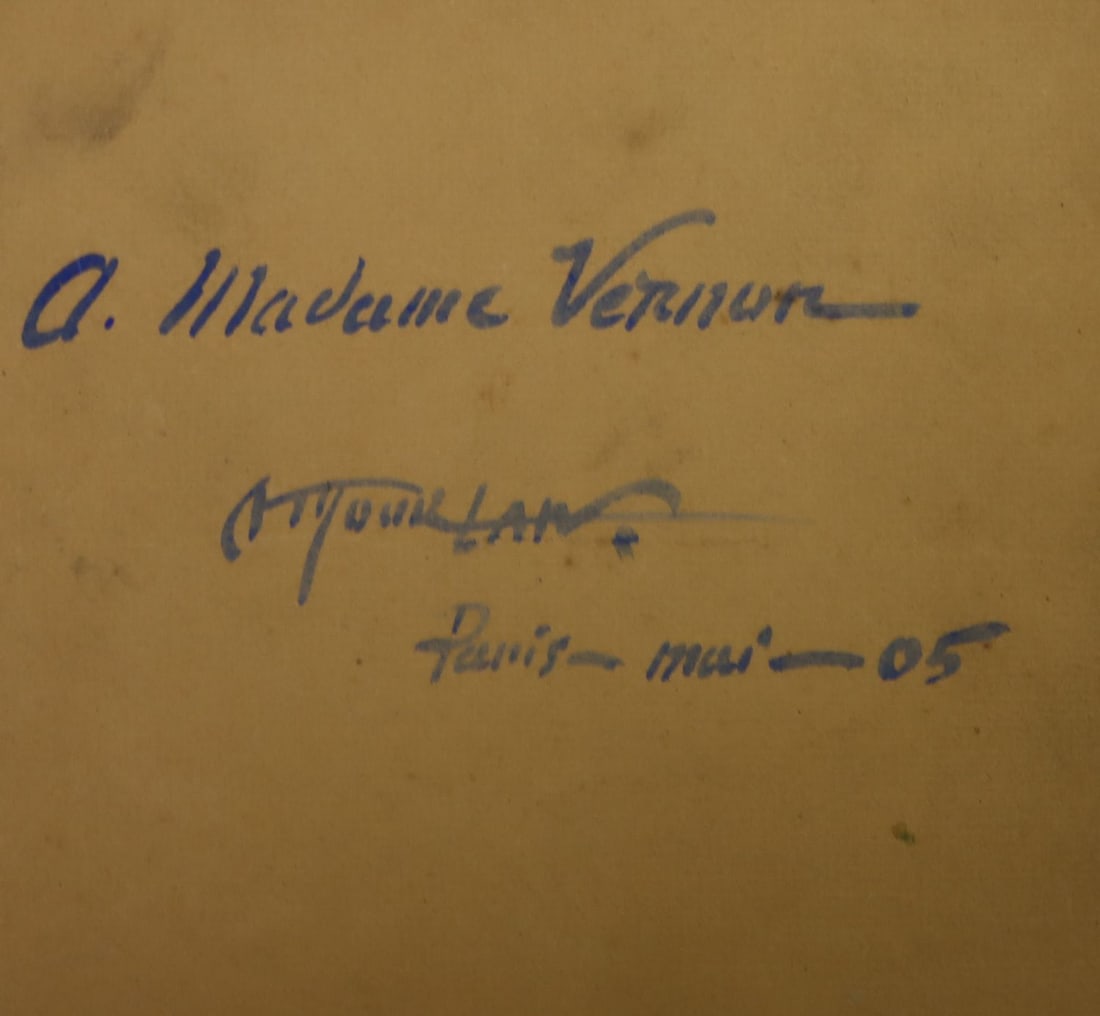 A. Madame Vernon
Paris - mai - 05